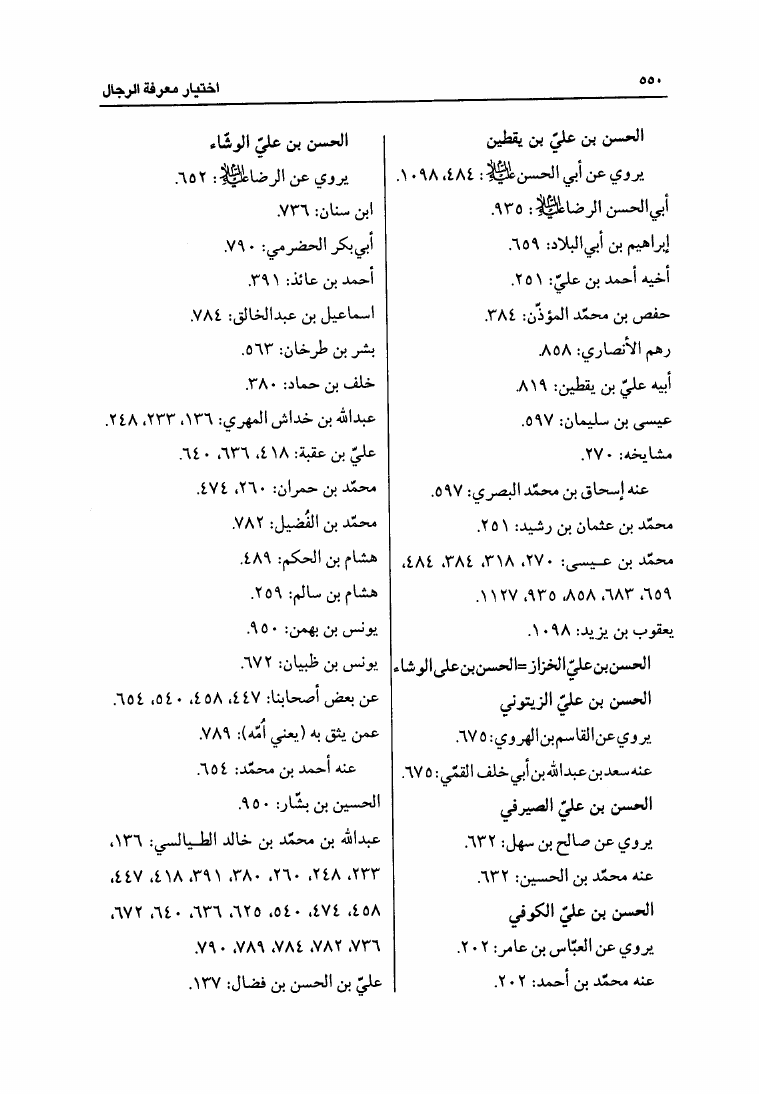 ٥٥٠
اختيار معرفة الرجال
الحسن بن عليّ بن يقطين
يروي عن أبي الحسن عليه السلام: ٤٨٤، ١٠٩٨.
أبي‌الحسن الرضا عليه السلام: ٩٣٥.
إبراهيم بن أبي‌البلاد: ٦٥٩.
أخيه أحمد بن عليّ: ٢٥١.
حفص بن محمّد المؤذّن: ٣٨٤.
رهم الأنصاري: ٨٥٨.
أبيه عليّ بن يقطين: ٨١٩.
عيسى بن سليمان: ٥٩٧.
مشايخه: ٢٧٠.
عنه إسحاق بن محمّد البصري: ٥٩٧.
محمّد بن عثمان بن رشيد: ٢٥١.
محمّد بن عيسى: ٢٧٠، ٣١٨، ٣٨٤، ٤٨٤،
٦٥٩، ٦٨٣، ٨٥٨، ٩٣٥، ١١٢٧.
يعقوب بن يزيد: ١٠٩٨.
الحسن بن عليّ الخزاز=الحسن بن على الوشاء
الحسن بن عليّ الزيتوني
يروي عن القاسم بن الهروي: ٦٧٥.
عنه سعد بن عبدالله بن أبي خلف القمّي: ٦٧٥.
الحسن بن عليّ الصيرفي
يروي عن صالح بن سهل: ٦٣٢.
عنه محمّد بن الحسين: ٦٣٢.
الحسن بن عليّ الكوفي
يروي عن العبّاس بن عامر: ٢٠٢.
عنه محمّد بن أحمد: ٢٠٢.
الحسن بن عليّ الوشّاء
يروي عن الرضا عليه السلام: ٦٥٢.
ابن سنان: ٧٣٦.
أبي‌بكر الحضرمي: ٧٩٠.
أحمد بن عائذ: ٣٩١.
اسماعيل بن عبدالخالق: ٧٨٤.
بشر بن طرخان: ٥٦٣.
خلف بن حماد: ٣٨٠.
عبدالله بن خداش المهري: ١٣٦، ٢٣٣، ٢٤٨.
عليّ بن عقبة: ٤١٨، ٦٣٦، ٦٤٠.
محمّد بن حمران: ٢٦٠، ٤٧٤.
محمّد بن الفُضيل: ٧٨٢.
هشام بن الحكم: ٤٨٩.
هشام بن سالم: ٢٥٩.
يونس بن بهمن: ٩٥٠.
يونس بن ظبيان: ٦٧٢.
عن بعض أصحابنا: ٤٤٧، ٤٥٨، ٥٤٠، ٦٥٤.
عمن يثق به (يعني أُمّه): ٧٨٩.
عنه أحمد بن محمّد: ٦٥٤.
الحسين بن بشّار: ٩٥٠.
عبدالله بن محمّد بن خالد الطيالسي: ١٣٦،
٢٣٣، ٢٤٨، ٢٦٠، ٣٨٠، ٣٩١، ٤١٨، ٤٤٧،
٤٥٨، ٤٧٤، ٥٤٠، ٦٢٥، ٦٣٦، ٦٤٠، ٦٧٢،
٧٣٦، ٧٨٢، ٧٨٤، ٧٨٩، ٧٩٠.
عليّ بن الحسن بن فضال: ١٣٧.